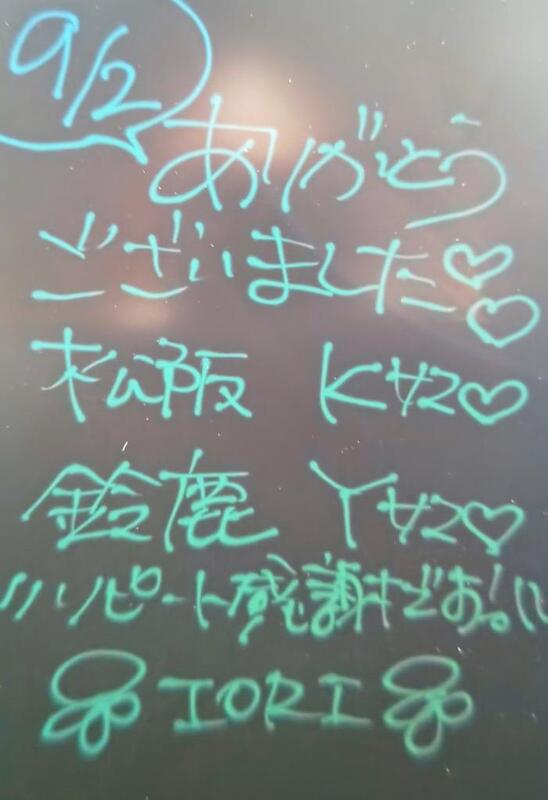 9/2
ありがとう
ございました♡♡
松阪 Kサン♡
鈴鹿 Yサン♡
\\リピート感謝だお!//
IORI